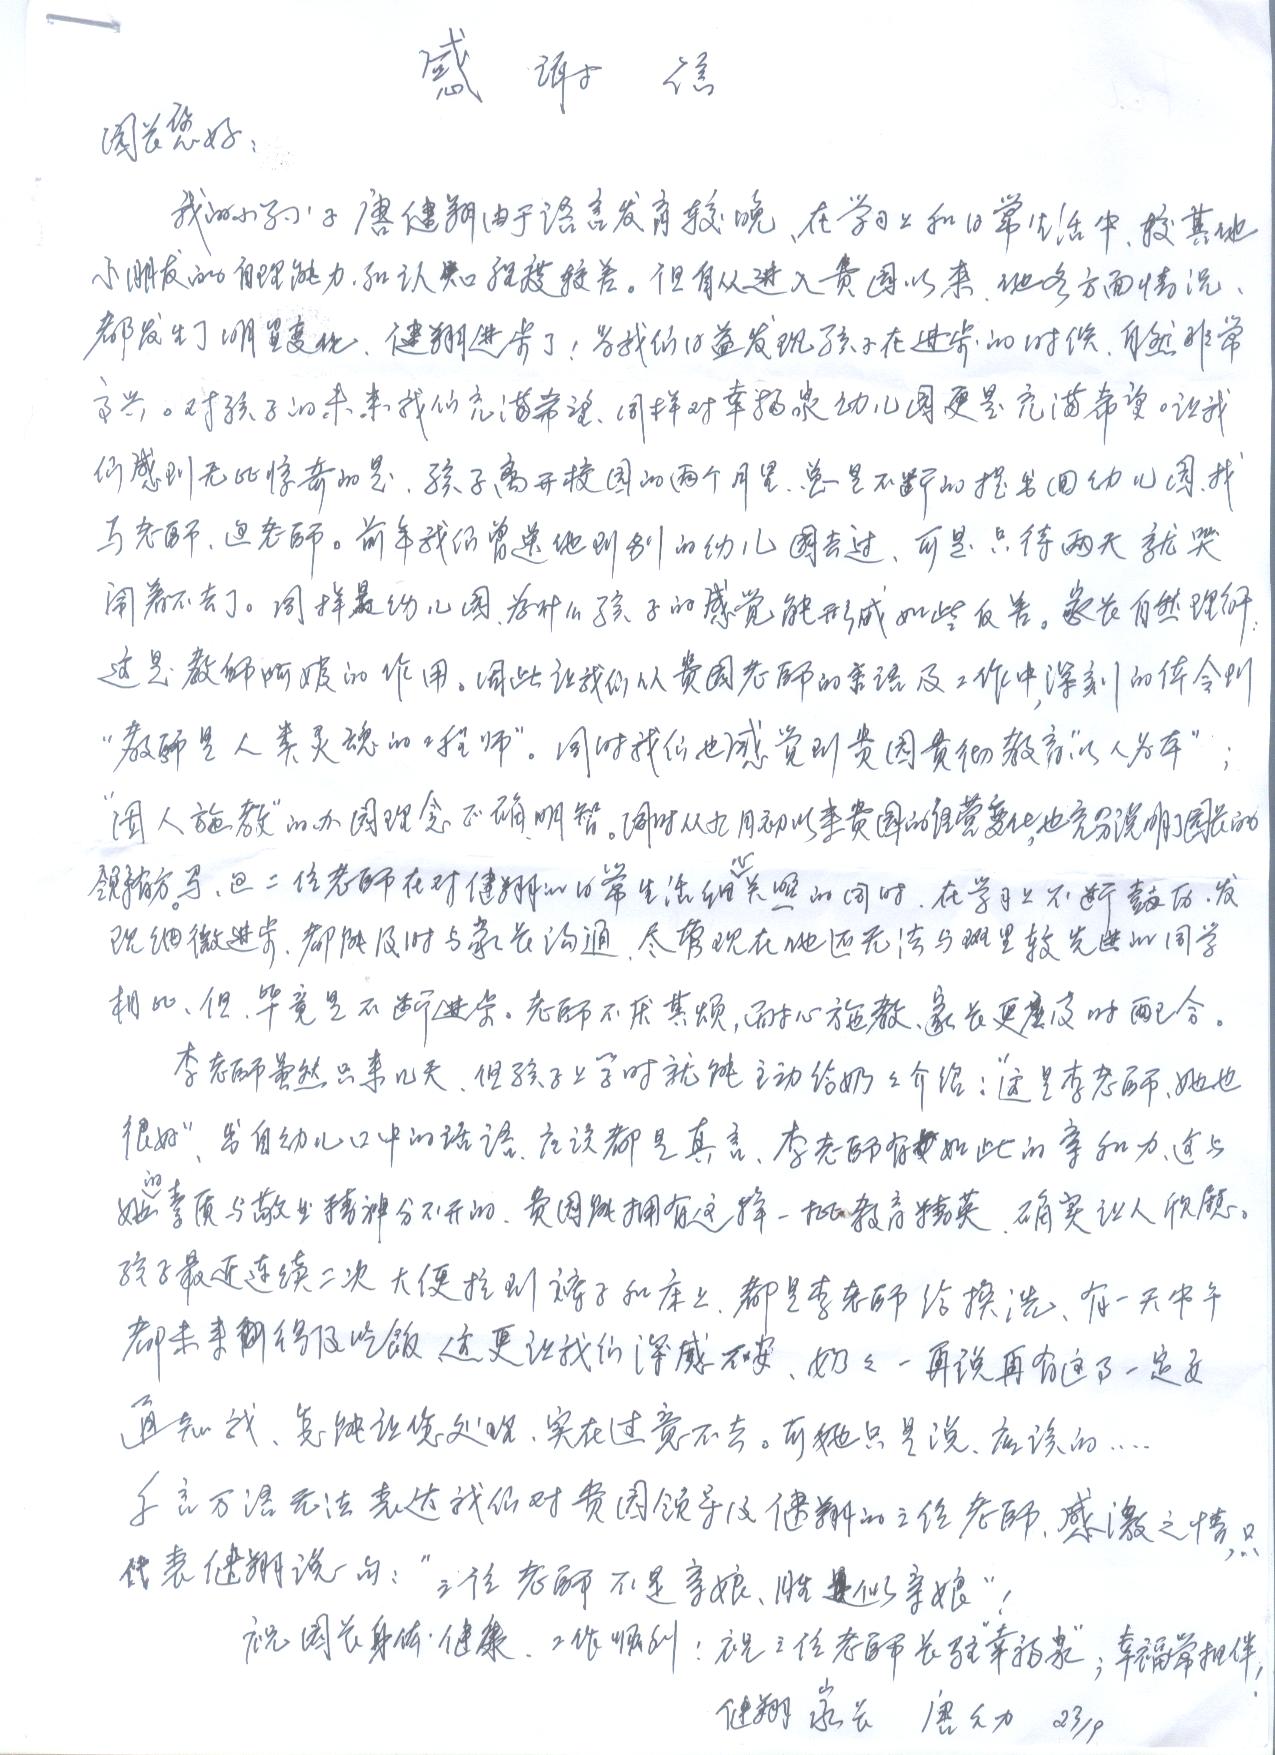 感谢信
园长您好：
我的小孙子唐健翔由于语言发育较晚、在学习上和日常生活中、较其他
小朋友的自理能力、和认知程度较差。但自从进入贵园以来、他各方面情况、
都发生了明显变化、健翔进步了！当我们日益发现孩子在进步的时候、自然非常
高兴。对孩子的未来我们充满希望、同样对幸福泉幼儿园更是充满希望。让我
们感到无比惊奇的是、孩子离开校园的两个月里、总是不断的提出回幼儿园、找
马老师、迟老师。前年我们曾送他到别的幼儿园去过、可是只待两天就哭
闹着不去了。同样是幼儿园、为什么孩子的感觉能形成如此反差。家长自然理解：
这是教师阿姨的作用。因此让我们从贵园老师的言语及工作中，深刻的体会到
“教师是人类灵魂的工程师”。同时我们也感觉到贵园贯彻教育“以人为本”；
“因人施教”的办园理念正确、明智。同时从九月初以来贵园的经营变化，也充分说明了园长的
领导有方。马、迟二位老师在对健翔的日常生活细心关照的同时、在学习上不断鼓励、发
现细微进步、都能及时与家长沟通、尽管现在他还无法与班里较先进的同学
相比、但、毕竟是不断进步。老师不厌其烦，耐心施教、家长更应及时配合。
李老师虽然只来几天、但孩子上学时就能主动给奶奶介绍：“这是李老师、她也
很好”、出自幼儿口中的话语、应该都是真言、李老师有如此的亲和力、这与
她的素质与敬业精神分不开的、贵园能拥有这样一批教育精英、确实让人欣慰。
孩子最近连续二次大便拉到裤子和床上、都是李老师给换洗、有一天中午
都未来得及吃饭、这更让我们深感不安、奶奶一再说再有这事一定要
通知我、怎能让您处理、实在过意不去。可她只是说、应该的....
千言万语无法表达我们对贵园领导及健翔的三位老师、感激之情，只
代表健翔说一句：“三位老师不是亲娘、胜似亲娘”！
祝园长身体健康、工作顺利！祝三位老师长驻“幸福泉”；幸福常相伴！
健翔家长 唐 力 23/9